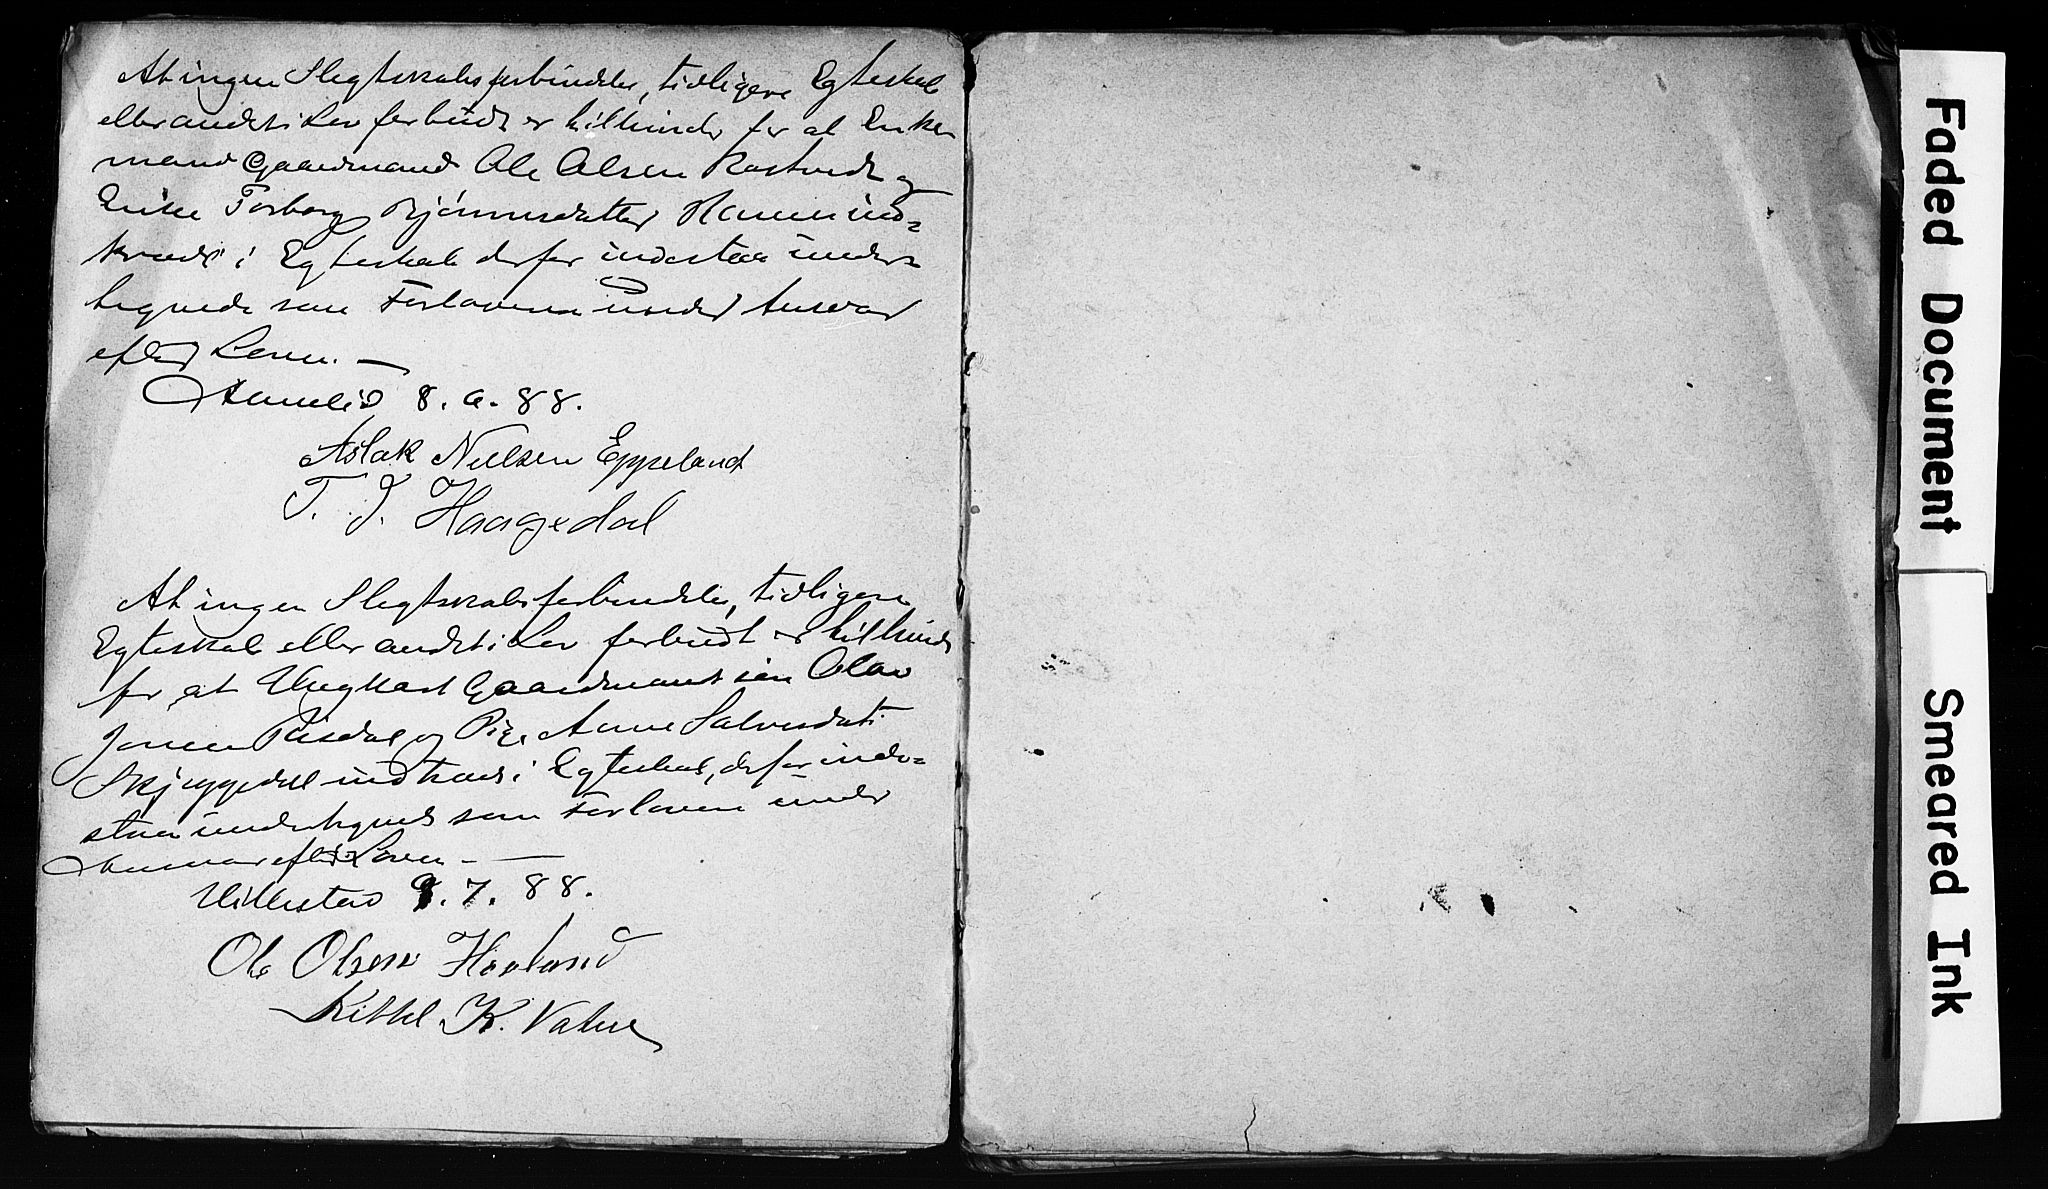 At ingen Slegtskabsforbindelse, tidligere Egteskab
eller andet i Lov forbudt er til hinder for at Enke-
mand Gaardmand Ole Olsen Rostvedt og
Enke Torborg Bjørnsdatter Hamre ind-
træde i Egteskab derfor indestaa under-
tegnede som Forlovere under Ansvar
efter Loven. —
Aamlid 8. 6. 88.
Aslak Nielsen Eppeland
T. J. Haugedal
At ingen Slegtskabsforbindelse, tidligere
Egteskab eller andet i Lov forbudt er til hinder
for at Ungkarl Gaardmandssøn Olav
Jonsen Risdal og Pige Anne Salvesdatt.
Skjeggedal indtræde i Egteskab, derfor inde-
staa undertegnede som Forlovere under
Ansvar efter Loven. —
Hillestad 9. 7. 88.
Ole Olsen Hovland
Kittel K. Vatne
Faded Document
Smeared Ink